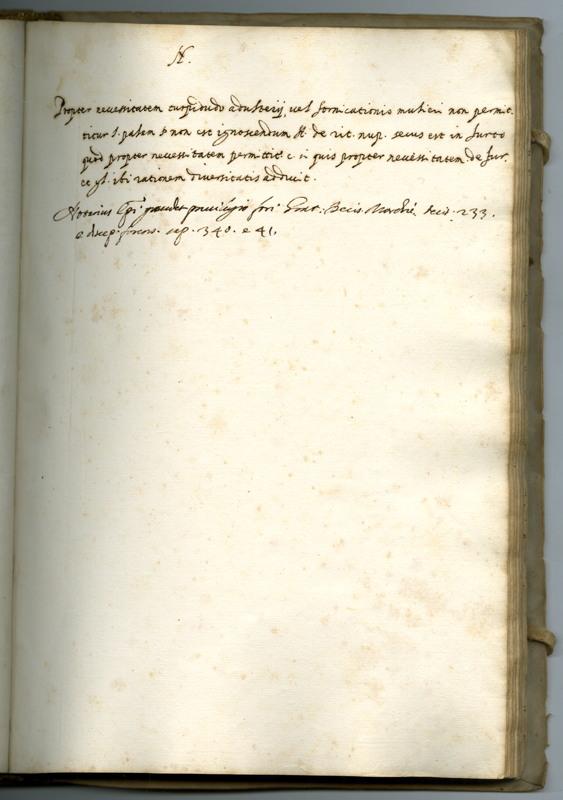 N.
Propter necessitatem turpitudo adulterij, vel fornicationis mulieri non permit-
titur l. palam § non est ignoscendum ff. de rit. nup. secus est in furto
quod propter necessitatem permittit. c. si quis propter necessitatem de fur.
et gl. ibi rationem diversitatis adducit.
Notarius gaudet privilegio fori. Decis. 233.
e discep. forens. cap. 340. e 41.